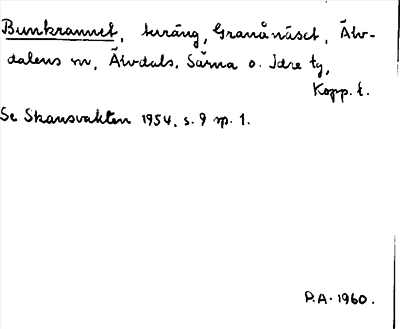 Bunkrammet, teräng, Granånäset, Älv-
dalens sn, Älvdals, Särna o. Idre tg,
Kopp. l.
Se Skansvakten 1954, s. 9 sp. 1.
P.A. 1960.